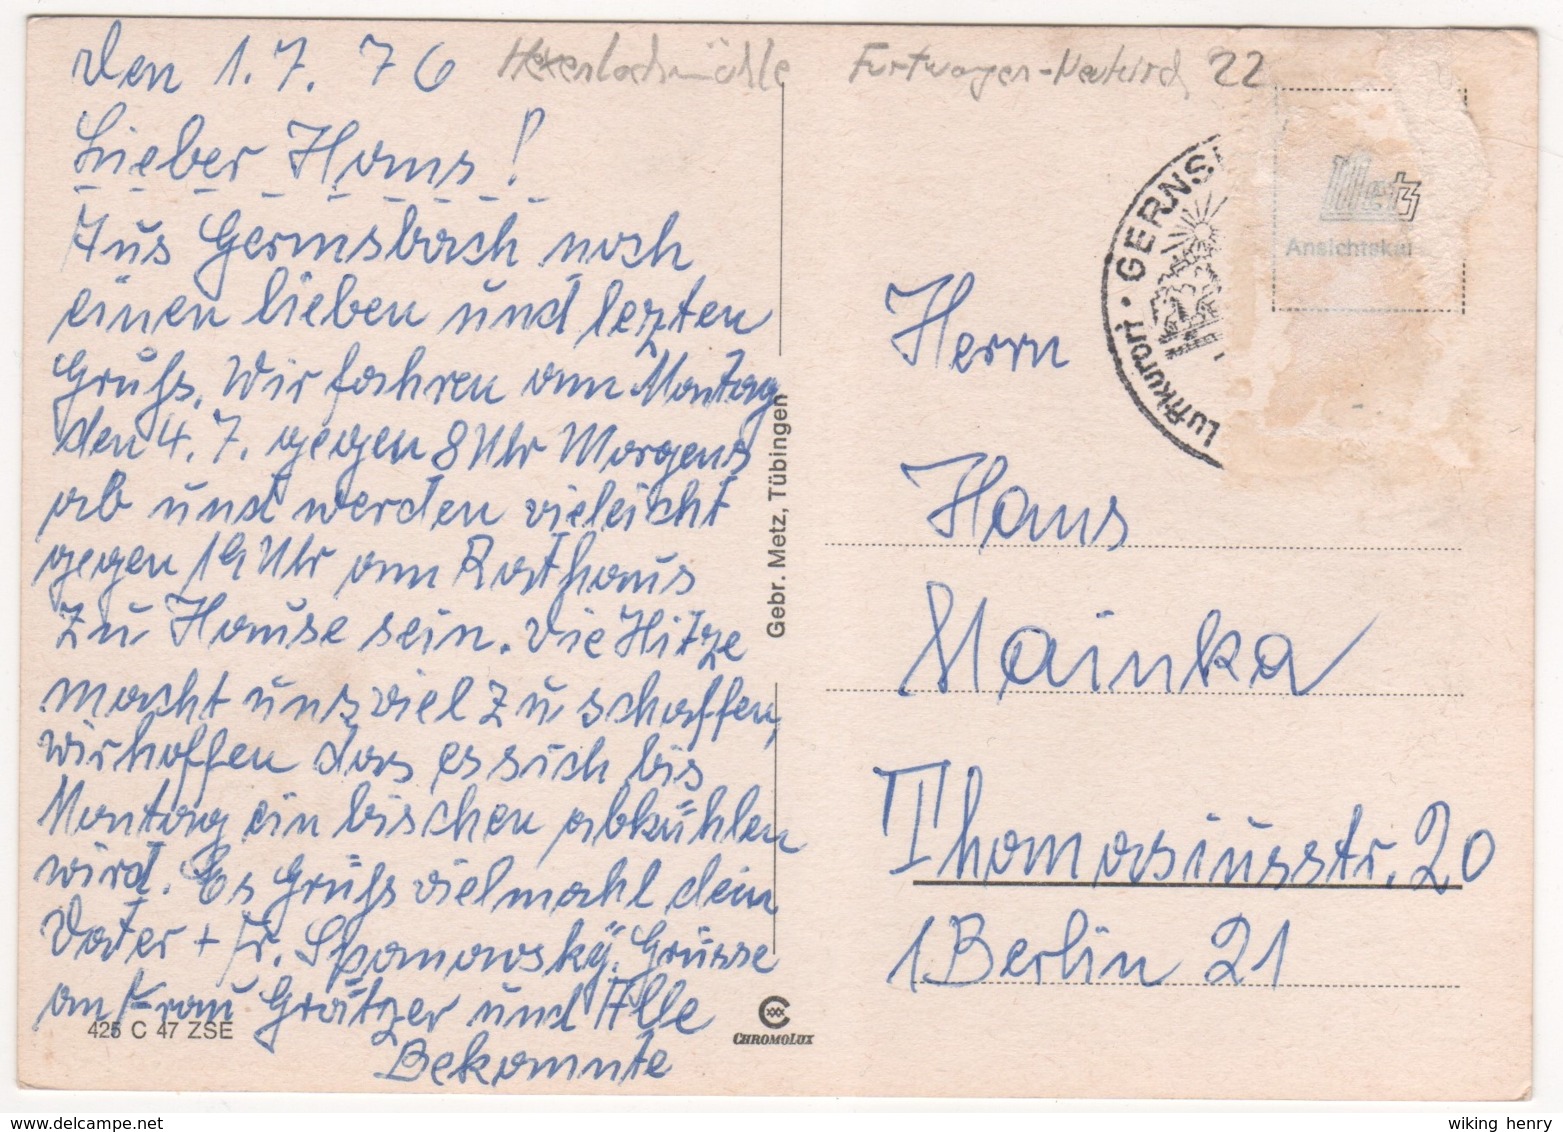 den 1.7.76
Hexenlochmühle Furtwagen-Neukirch 22
Lieber Hans!
Aus Germsbach noch
einen lieben und lezten
Gruß. Wir fahren am Montag
den 4.7. gegen 8 Uhr Morgens
ab und werden vieleicht
gegen 19 Uhr am Rathaus
zu Hause sein. Die Hitze
macht uns viel zu schaffen,
wir hoffen das es sich bis
Montag ein bischen abkühlen
wird. Es Grüßt vielmahl dein
Vater + Fr. Spanowsky. Grüsse
an Frau Grätzer und Alle
Bekannte
425 C 47 ZSE
Gebr. Metz, Tübingen
CHROMOLUX
Luftkurort · GERNS
Metz
Ansichtskar
Herrn
Hans
Mainka
Thomasiusstr. 20
1 Berlin 21
wiking henry